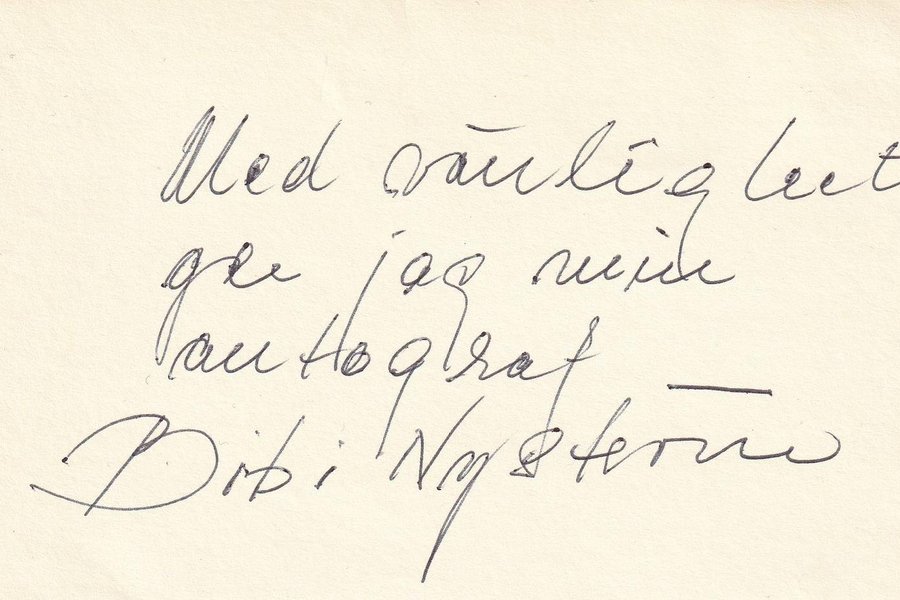 Med vänlighet
ger jag min
autograf
Bibi Nyström